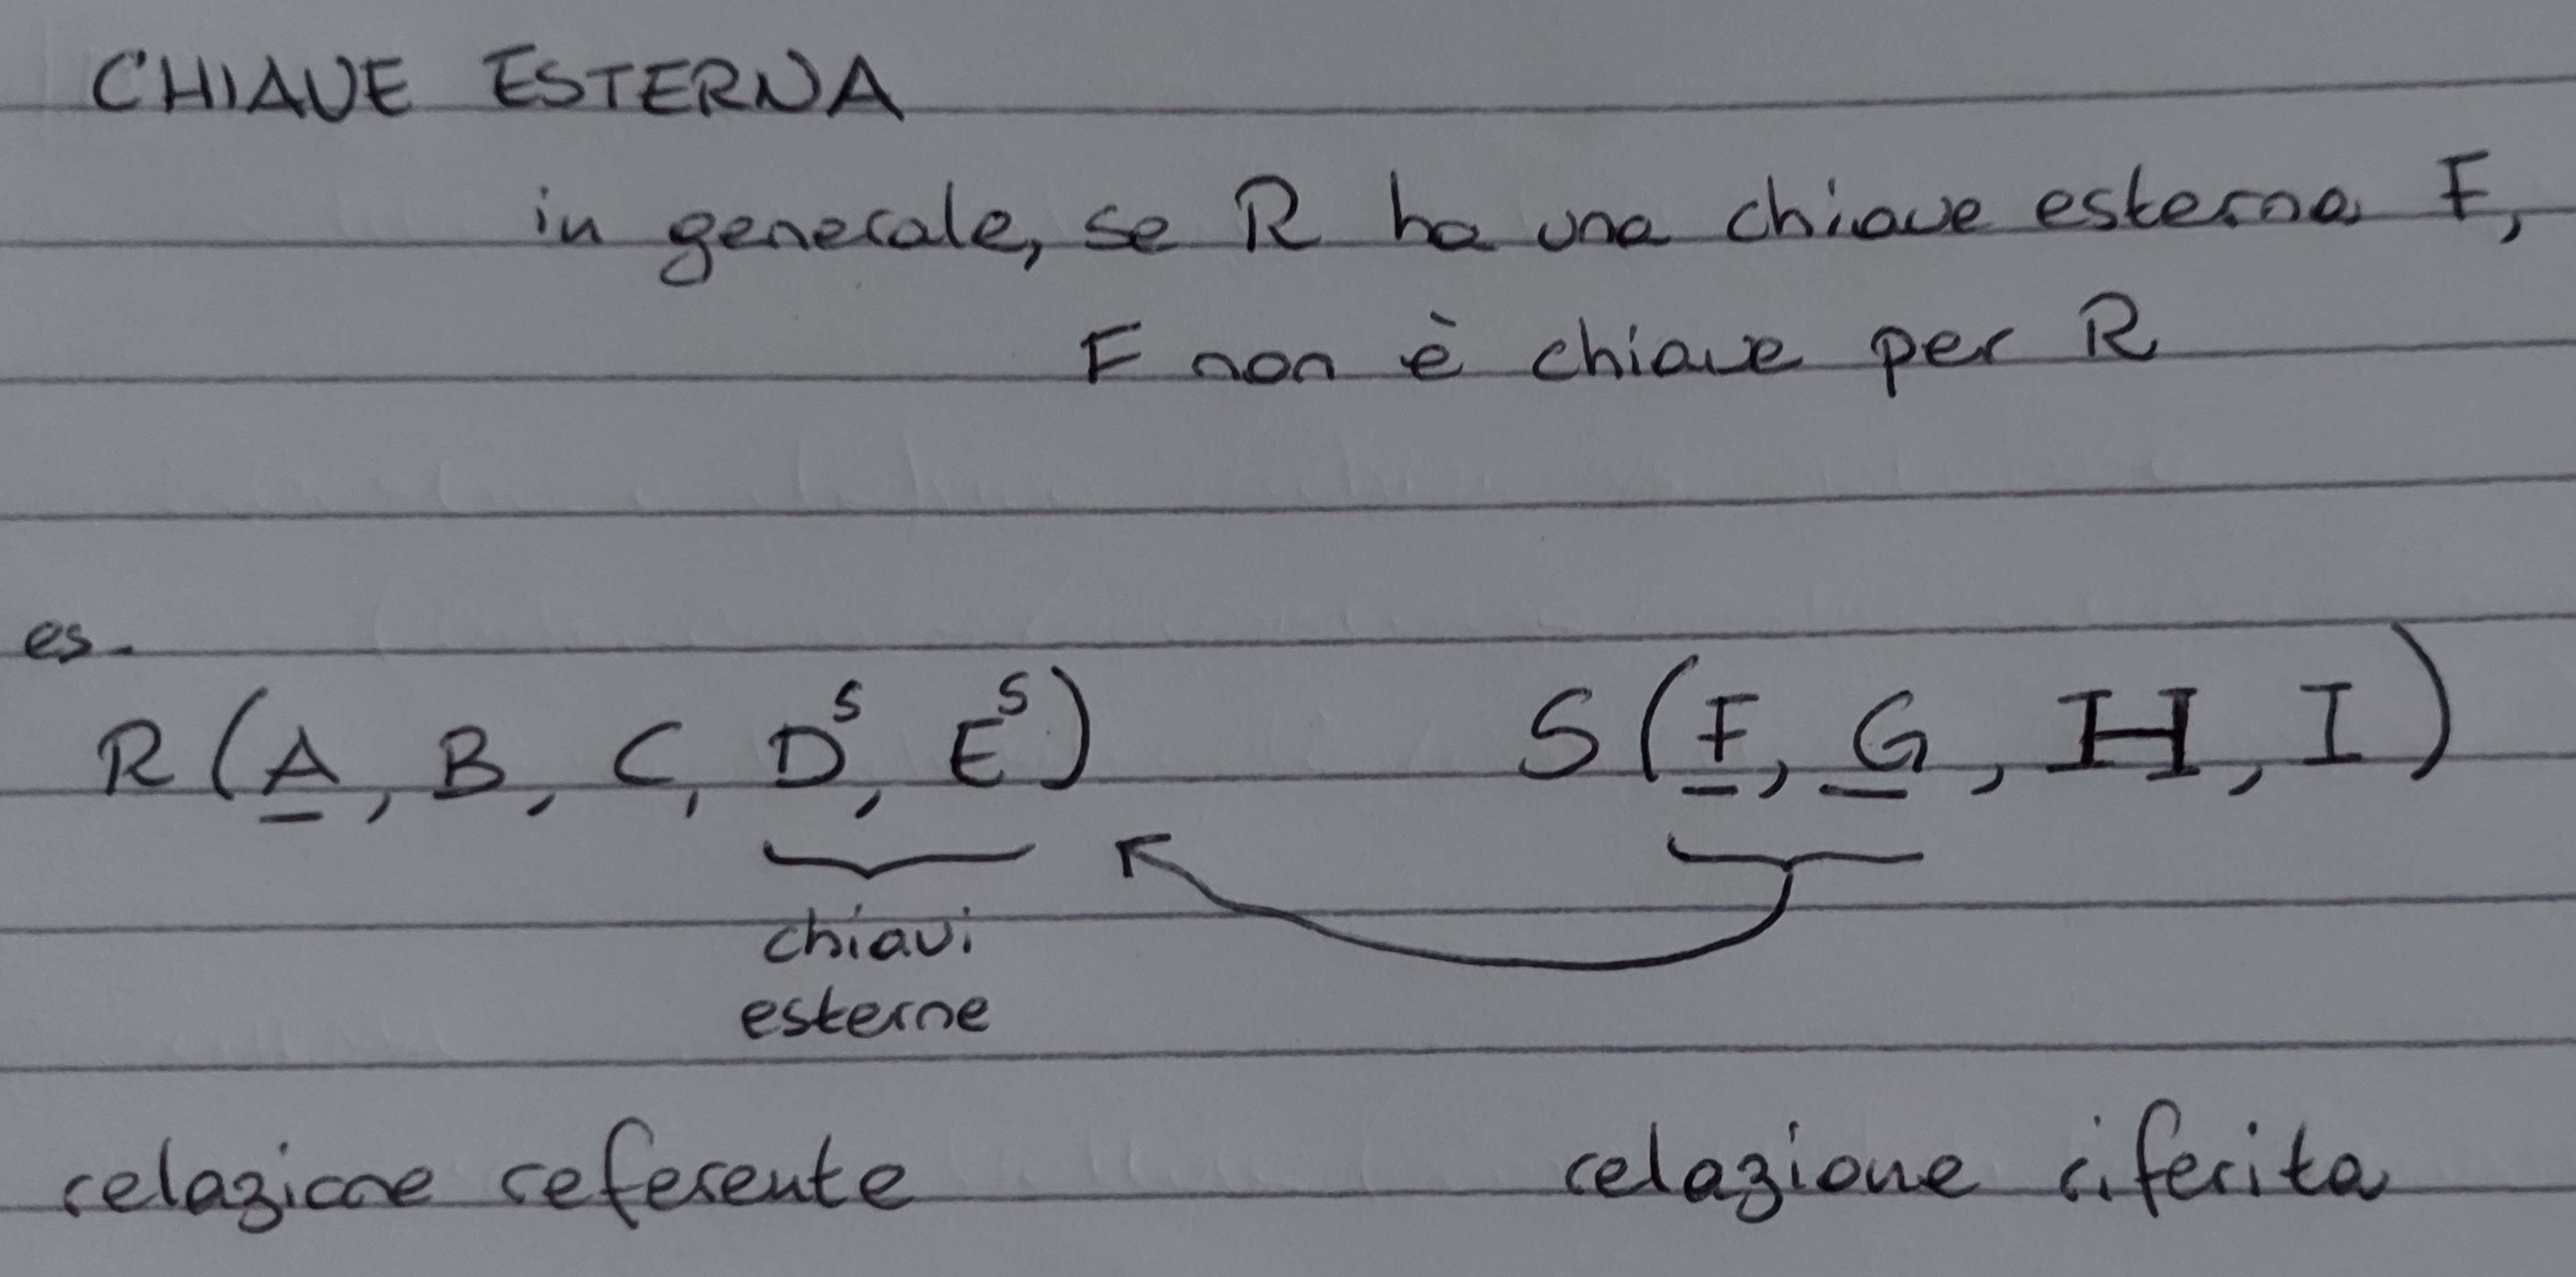 CHIAVE ESTERNA
in generale, se R ha una chiave esterna F,
F non è chiave per R
es.
R (A, B, C, Dˢ, Eˢ) S (F, G, H, I)
chiavi
esterne
relazione referente relazione riferita